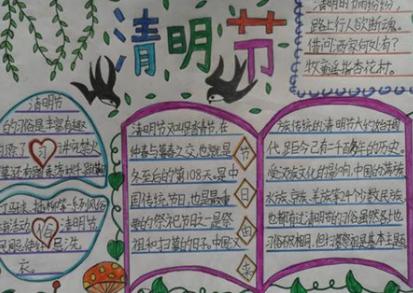 清明节
路上行人欲断魂。
借问酒家何处有?
牧童遥指杏花村。
清明节
的习俗是丰富有趣
讲究禁火
清明节
俗
衣。
清明节又叫踏青节,在
仲春与暮春之交,也就是
冬至后的第108天。是中
国传统节日,也是最重
要的祭祀节日之一是祭
祖和扫墓的日子。中国汉
节
日
由
来
族传统的清明节大约始于周
代,距今已有二千多年的历史。
受汉族文化的影响,中国的满族
水族,京族,羌族等24个少数民族,
也都有过清明节的习俗虽然各地
习俗不尽相同,但扫墓祭祖是基本主题